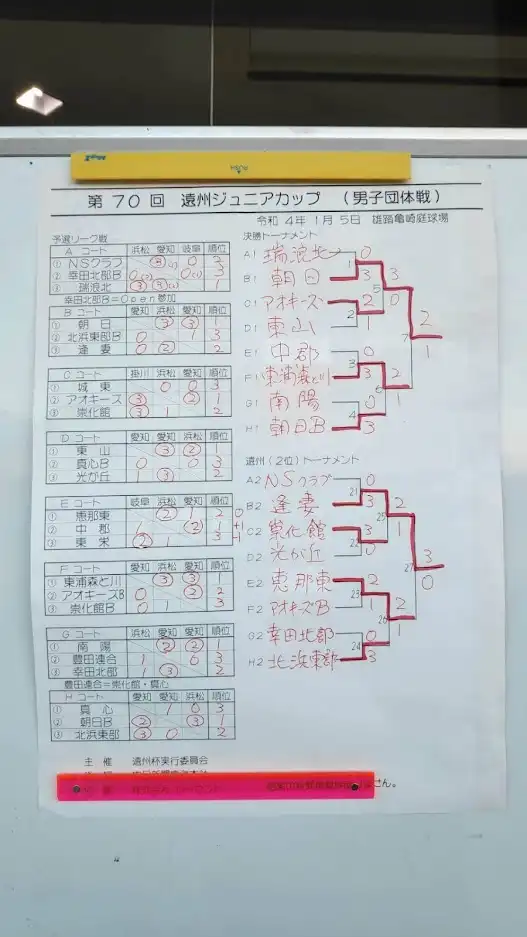 第 70 回 遠州ジュニアカップ (男子団体戦)
令和 4年 1月 5日 雄踏亀崎庭球場
予選リーグ戦
A コート 浜松 愛知 岐阜 順位
① NSクラブ ③(1) 0 2
② 幸田北部B 0(1) 0(1) 3
③ 瑞浪北 ③ ③(1) 1
幸田北部B=Open参加
B コート 愛知 浜松 愛知 順位
① 朝 日 ③ ③ 1
② 北浜東部B 0 1 3
③ 逢 妻 0 ② 2
C コート 掛川 浜松 愛知 順位
① 城 東 0 0 3
② アオキーズ ③ ② 1
③ 崇化館 ③ 1 2
D コート 愛知 愛知 浜松 順位
① 東 山 ③ ② 1
② 真心B 0 0 3
③ 光が丘 1 ③ 2
E コート 岐阜 浜松 愛知 順位
① 恵那東 ② 1 2
② 中 郡 1 ② 1
③ 東 栄 ② 1 3
F コート 浜松 愛知 愛知 順位
① 東浦森と川 ③ ③ 1
② アオキーズB 0 ② 2
③ 崇化館B 0 1 3
G コート 浜松 愛知 愛知 順位
① 南 陽 ② ② 1
② 豊田連合 1 0 3
③ 幸田北部 1 ③ 2
豊田連合=崇化館・真心
H コート 愛知 愛知 浜松 順位
① 真 心 1 0 3
② 朝日B ② ③ 1
③ 北浜東部 ③ 0 2
主 催 遠州杯実行委員会
決勝トーナメント
A1 瑞浪北 0
B1 朝日 3 3
C1 アオキーズ 2 0
D1 東山 1
E1 中郡 0
F1 東浦森と川 3 2
G1 南陽 0 1
H1 朝日B 3
2
1
遠州(2位)トーナメント
A2 NSクラブ 0
B2 逢妻 3 2
C2 崇化館 3 1
D2 光が丘 0
E2 恵那東 2
F2 アオキーズB 1 2
G2 幸田北部 0 1
H2 北浜東部 3
3
0
さん。